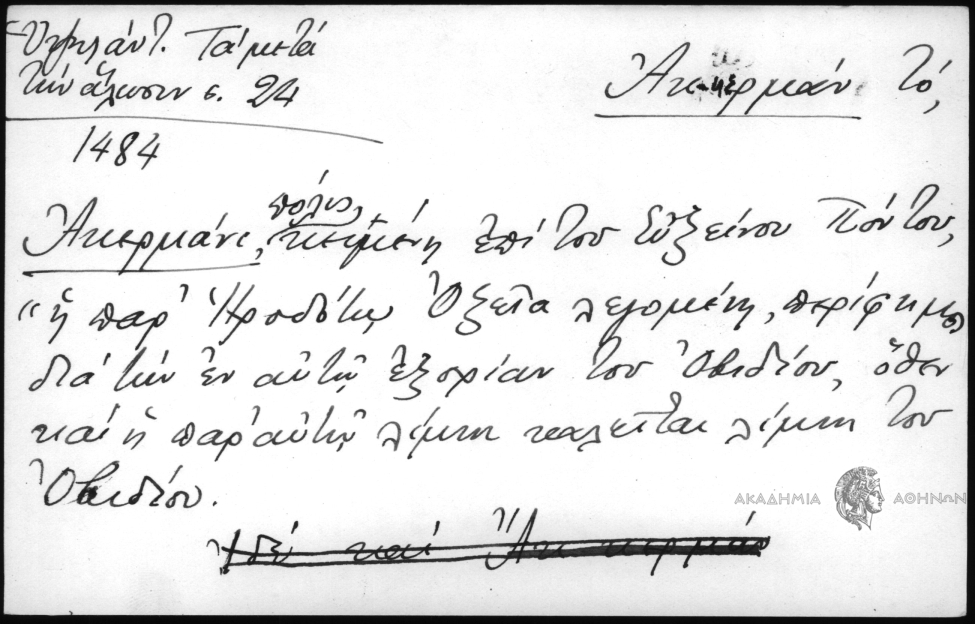 Ὑψηλάντ. Τά μετά
τήν ἅλωσιν σ. 24
Ἀκ-κερμάν τό,
1484
Ἀκερμάνι, πόλις, κειμένη ἐπί τοῦ Εὐξείνου Πόντου,
"ἡ παρ' Ἡροδότῳ Ὀξεῖα λεγομένη, περίφημος
διά τήν ἐν αὐτῇ ἐξορίαν τοῦ Ὀβιδίου, ὅθεν
καί ἡ παρ' αὐτῇ λίμνη καλεῖται λίμνη τοῦ
Ὀβιδίου.
ΑΚΑΔΗΜΙΑ ΑΘΗΝΩΝ
Ἰδέ καί Ἀκκερμάν